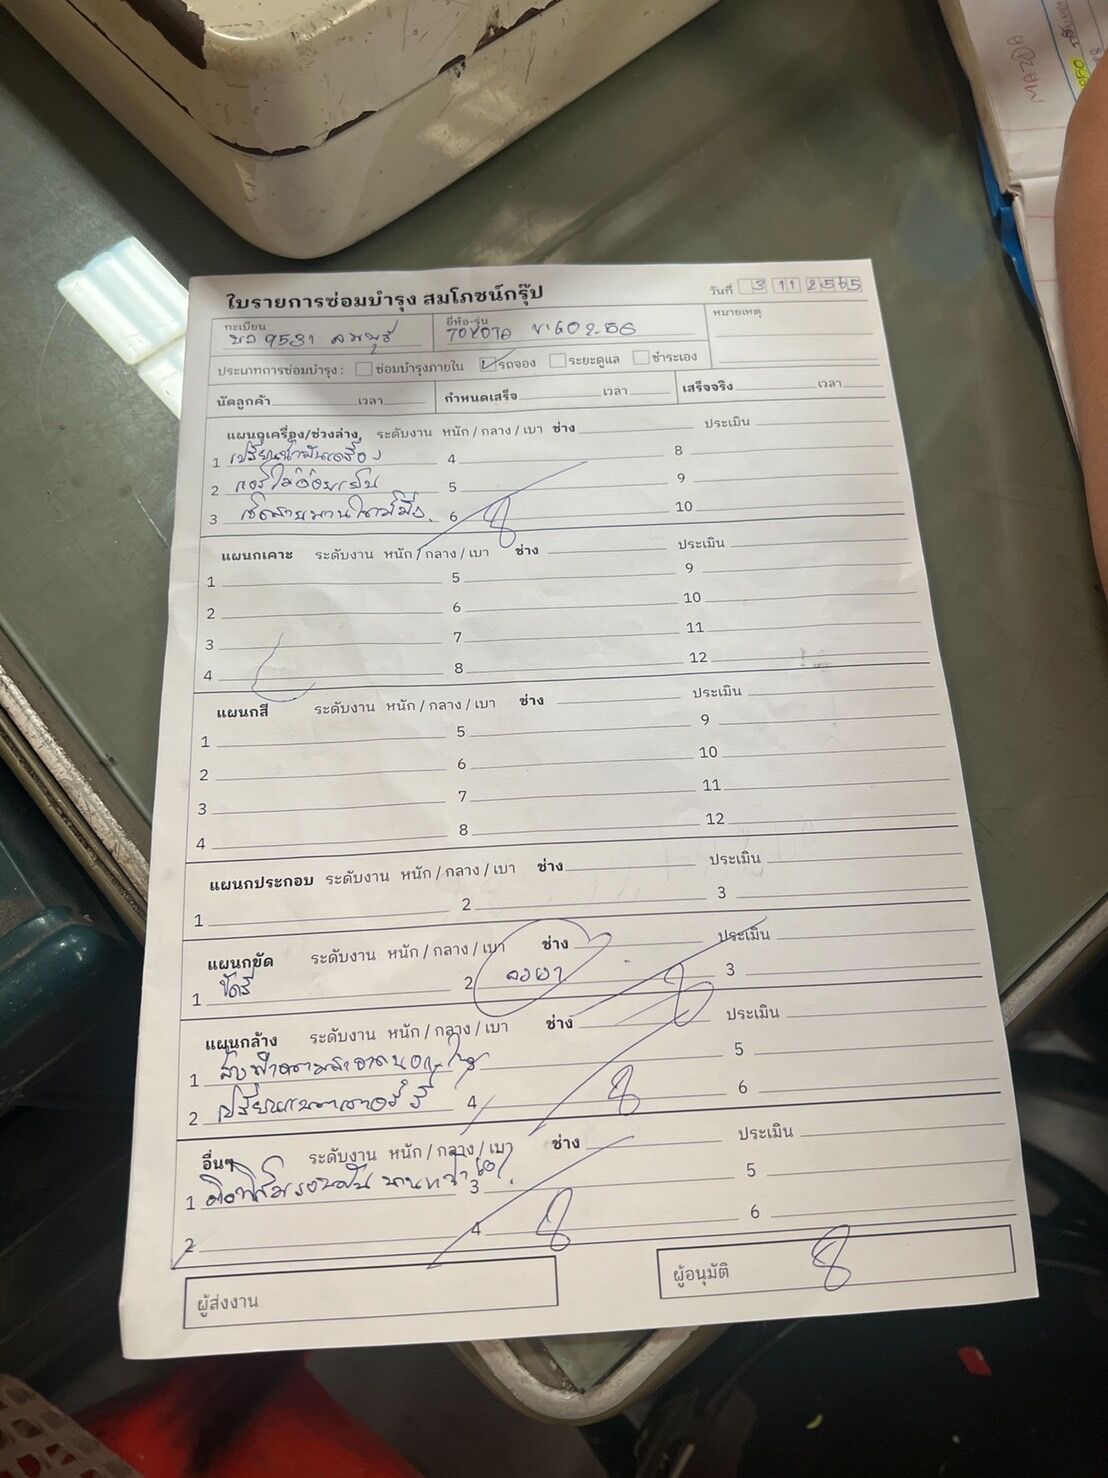 ใบรายการซ่อมบำรุง สมโภชน์กรุ๊ป
วันที่ 3 11 2565
ทะเบียน ยี่ห้อ-รุ่น หมายเหตุ
9531 ลพบุรี TOYOTA VIGO
ประเภทการซ่อมบำรุง : ซ่อมบำรุงภายใน รถจอง ระยะดูแล ชำระเอง
นัดลูกค้า เวลา กำหนดเสร็จ เวลา เสร็จจริง เวลา
แผนกเครื่อง/ช่วงล่าง ระดับงาน หนัก / กลาง / เบา ช่าง ประเมิน
1 เปลี่ยนน้ำมันเครื่อง 4 8
2 แอร์ไม่ค่อยเย็น 5 9
3 6 10
แผนกเคาะ ระดับงาน หนัก / กลาง / เบา ช่าง ประเมิน
1 5 9
2 6 10
3 7 11
4 8 12
แผนกสี ระดับงาน หนัก / กลาง / เบา ช่าง ประเมิน
1 5 9
2 6 10
3 7 11
4 8 12
แผนกประกอบ ระดับงาน หนัก / กลาง / เบา ช่าง ประเมิน
1 2 3
แผนกขัด ระดับงาน หนัก / กลาง / เบา ช่าง ประเมิน
1 ขัดสี 2 3
แผนกล้าง ระดับงาน หนัก / กลาง / เบา ช่าง ประเมิน
1 3 5
2 4 6
อื่นๆ ระดับงาน หนัก / กลาง / เบา ช่าง ประเมิน
1 3 5
2 4 6
ผู้ส่งงาน ผู้อนุมัติ